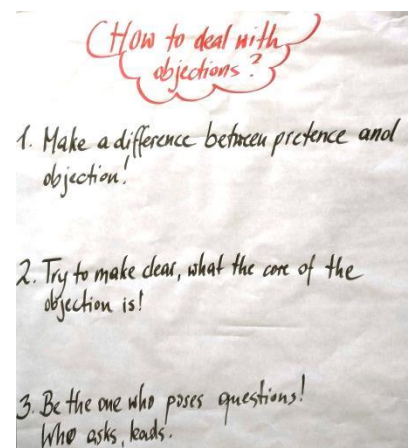 How to deal with
objections?
1. Make a difference between pretence and
objection!
2. Try to make clear, what the core of the
objection is!
3. Be the one who poses questions!
Who asks, leads.